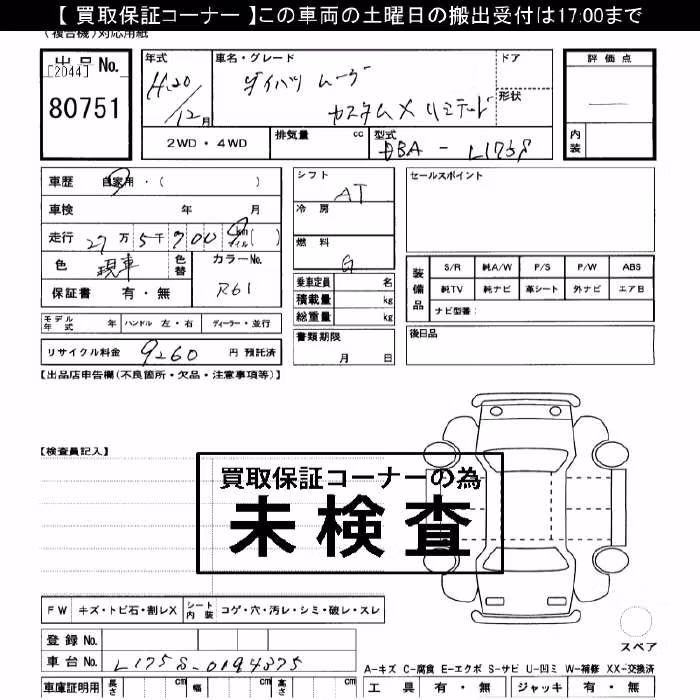 【 買取保証コーナー 】この車両の土曜日の搬出受付は17:00まで
(複合機)対応用紙
出品No.
[2044]
80751
年式
H20/12月
車名・グレード
ダイハツ ムーヴ
カスタムX リミテッド
ドア
形状
評価点
内装
2WD・4WD
排気量 cc
型式
DBA - L175S
車歴 自家用・( )
車検 年 月
走行 27万5千900 km マイル( )
色 現車
色替
カラーNo.
R61
保証書 有・無
モデル年式 年 ハンドル 左・右 ディーラー・並行
リサイクル料金 9260 円 預託済
シフト
AT
冷房
燃料
G
乗車定員 名
積載量 kg
総重量 kg
書類期限
月 日
セールスポイント
装備品
S/R 純A/W P/S P/W ABS
純TV 純ナビ 革シート 外ナビ エアB
ナビ型番:
後日品
【出品店申告欄(不良箇所・欠品・注意事項等)】
【検査員記入】
買取保証コーナーの為
未検査
FW キズ・トビ石・割レX シート内装 コゲ・穴・汚レ・シミ・破レ・スレ
登録No.
車台No. L175S-0194375
スペア
A-キズ C-腐食 E-エクボ S-サビ U-凹ミ W-補修 XX-交換済
車庫証明用 長さ cm 幅 cm 高さ cm
工具 有・無 ジャッキ 有・無